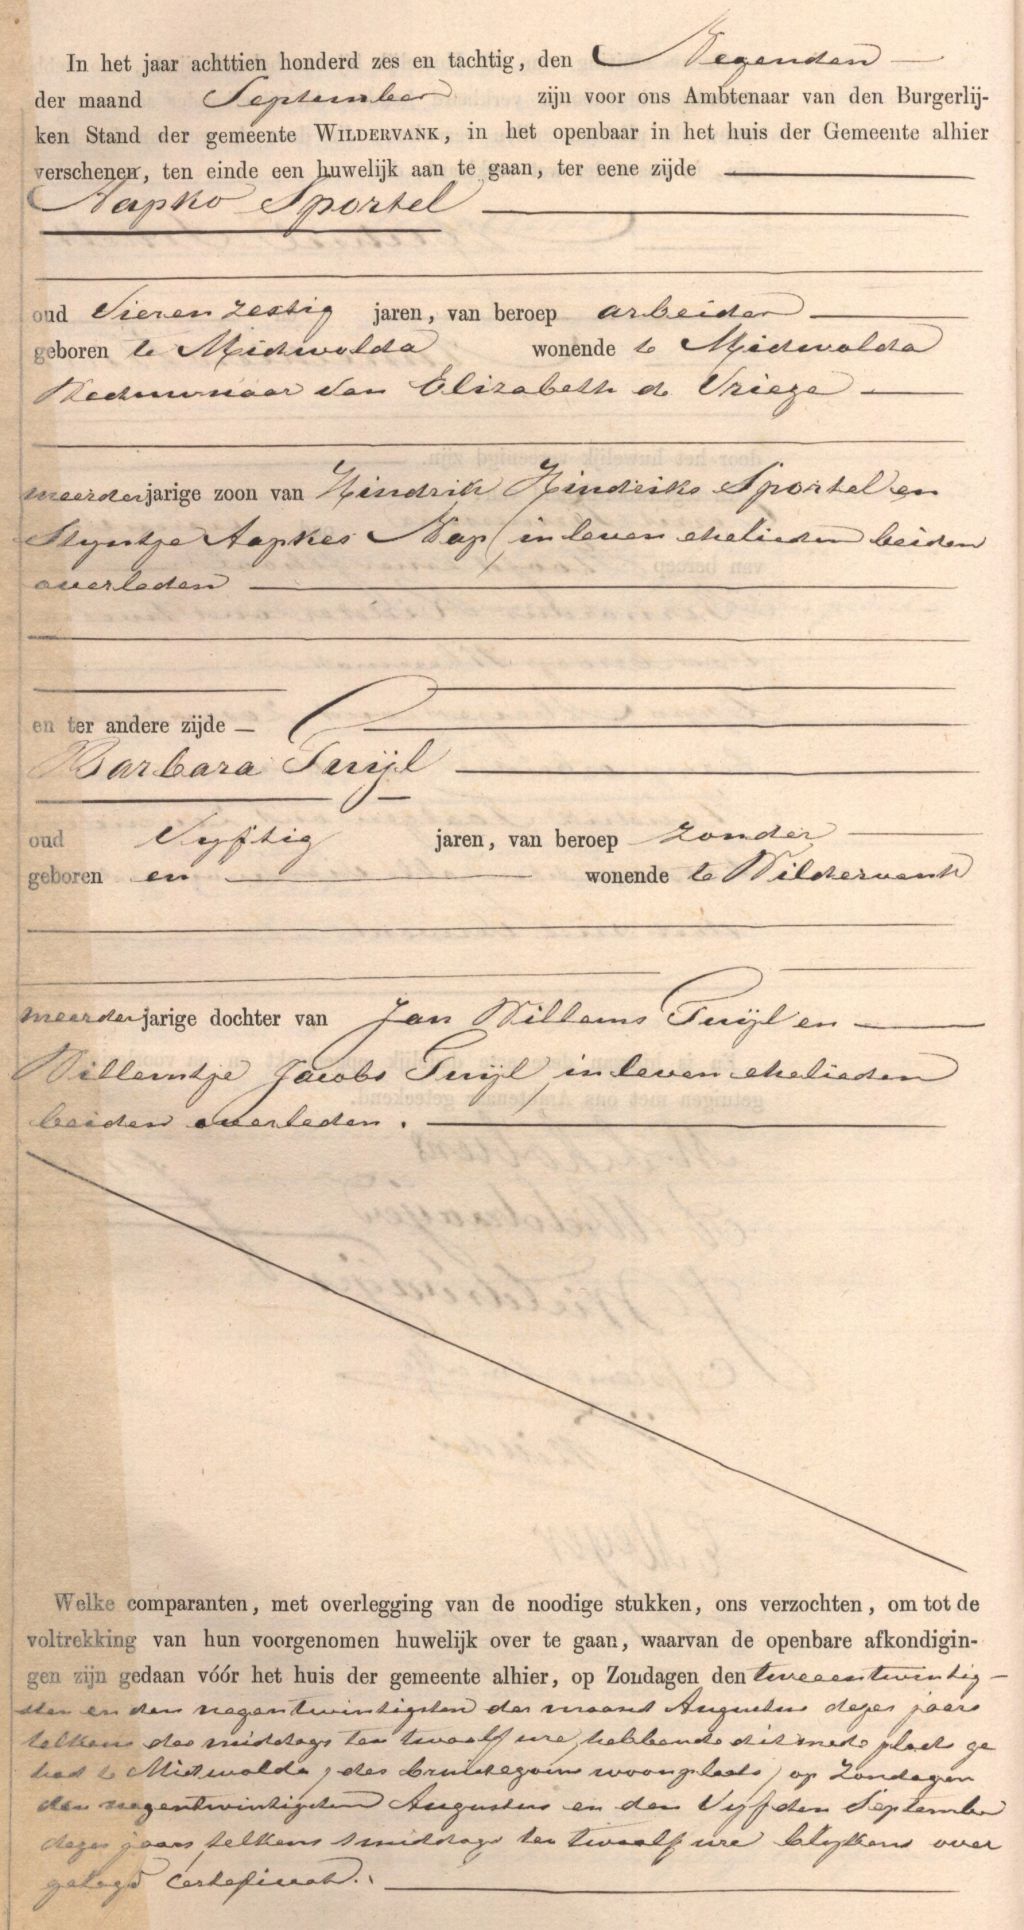 In het jaar achttien honderd zes en tachtig, den Negenden
der maand September zijn voor ons Ambtenaar van den Burgerlij-
ken Stand der gemeente WILDERVANK, in het openbaar in het huis der Gemeente alhier
verschenen, ten einde een huwelijk aan te gaan, ter eene zijde
Aapko Sportel
oud Vierenzestig jaren, van beroep arbeider
geboren te Midwolda wonende te Midwolda
Weduwnaar van Elizabeth de Vrieze
meerderjarige zoon van Hindrik Hindriks Sportel en
Styntje Aapkes Nap, in leven ehelieden beiden
overleden
en ter andere zijde
Barbara Tuijl
oud Vyftig jaren, van beroep zonder
geboren en wonende te Wildervank
meerderjarige dochter van Jan Willems Tuijl en
Willemtje Jacobs Tuijl, in leven ehelieden
beiden overleden.
Welke comparanten, met overlegging van de noodige stukken, ons verzochten, om tot de
voltrekking van hun voorgenomen huwelijk over te gaan, waarvan de openbare afkondigin-
gen zijn gedaan vóór het huis der gemeente alhier, op Zondagen den tweeentwintig-
sten en den negentwintigsten der maand Augustus dezes jaars
telkens des middags ten twaalf ure, hebbende dit mede plaats ge
had te Midwolda, des bruidegoms woonplaats, op Zondagen
den negentwintigsten Augustus en den Vyfden September
dezes jaars telkens smiddags ten twaalf ure blykens over
gelegd certificaat.